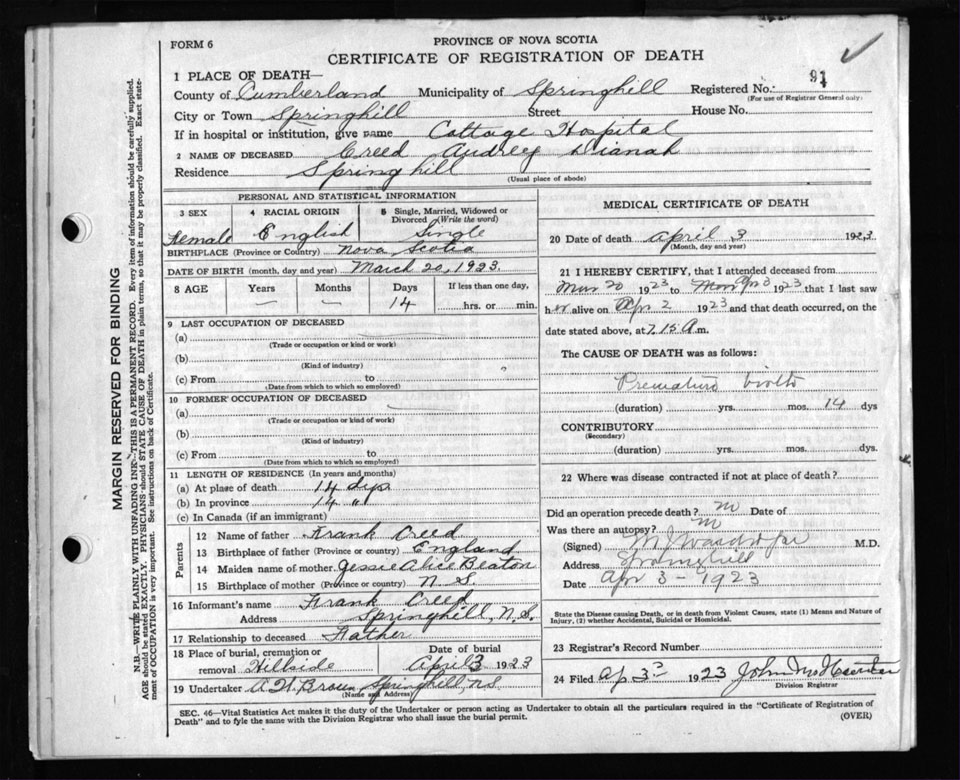 FORM 6
PROVINCE OF NOVA SCOTIA
CERTIFICATE OF REGISTRATION OF DEATH
1 PLACE OF DEATH—
County of Cumberland Municipality of Springhill Registered No. 91
(For use of Registrar General only)
City or Town Springhill Street House No.
If in hospital or institution, give name Cottage Hospital
2 NAME OF DECEASED Creed Audrey Dianah
Residence Springhill
(Usual place of abode)
PERSONAL AND STATISTICAL INFORMATION
3 SEX Female
4 RACIAL ORIGIN English
5 Single, Married, Widowed or Divorced (Write the word) Single
BIRTHPLACE (Province or Country) Nova Scotia
DATE OF BIRTH (month, day and year) March 20, 1923.
8 AGE Years Months Days If less than one day,
— — 14 hrs. or min.
9 LAST OCCUPATION OF DECEASED
(a)
(Trade or occupation or kind or work)
(b)
(Kind of industry)
(c) From to
(Date from which to which so employed)
10 FORMER OCCUPATION OF DECEASED
(a)
(Trade or occupation or kind of work)
(b)
(Kind of industry)
(c) From to
(Date from which to which so employed)
11 LENGTH OF RESIDENCE (In years and months)
(a) At place of death 14 dys
(b) In province 14 "
(c) In Canada (if an immigrant)
Parents
12 Name of father Frank Creed
13 Birthplace of father (Province or country) England
14 Maiden name of mother Jessie Alice Beaton
15 Birthplace of mother (Province or country) N. S.
16 Informant's name Frank Creed
Address Springhill, N. S.
17 Relationship to deceased Father
18 Place of burial, cremation or removal Hillside
Date of burial April 3 1923
19 Undertaker A. H. Brown Springhill NS
(Name and Address)
MEDICAL CERTIFICATE OF DEATH
20 Date of death April 3 1923.
(Month, day and year)
21 I HEREBY CERTIFY, that I attended deceased from
Mar 20 1923 to Apr 3 1923 that I last saw
her alive on Apr 2 1923 and that death occurred, on the
date stated above, at 7.15 A.m.
The CAUSE OF DEATH was as follows:
Premature birth
(duration) yrs. mos. 14 dys
CONTRIBUTORY
(Secondary)
(duration) yrs. mos. dys.
22 Where was disease contracted if not at place of death?
Did an operation precede death? no Date of
Was there an autopsy? no
(Signed) M.D.
Address Springhill
Date Apr 3 - 1923
State the Disease causing Death, or in death from Violent Causes, state (1) Means and Nature of
Injury, (2) whether Accidental, Suicidal or Homicidal.
23 Registrar's Record Number
24 Filed Ap. 3rd 1923 John
Division Registrar
SEC. 46—Vital Statistics Act makes it the duty of the Undertaker or person acting as Undertaker to obtain all the particulars required in the "Certificate of Registration of
Death" and to fyle the same with the Division Registrar who shall issue the burial permit.
(OVER)
MARGIN RESERVED FOR BINDING
N.B.—WRITE PLAINLY WITH UNFADING INK—THIS IS A PERMANENT RECORD. Every item of information should be carefully supplied.
AGE should be stated EXACTLY. PHYSICIANS should STATE CAUSE OF DEATH in plain terms, so that it may be properly classified. Exact state-
ment of OCCUPATION is very important. See instructions on back of Certificate.